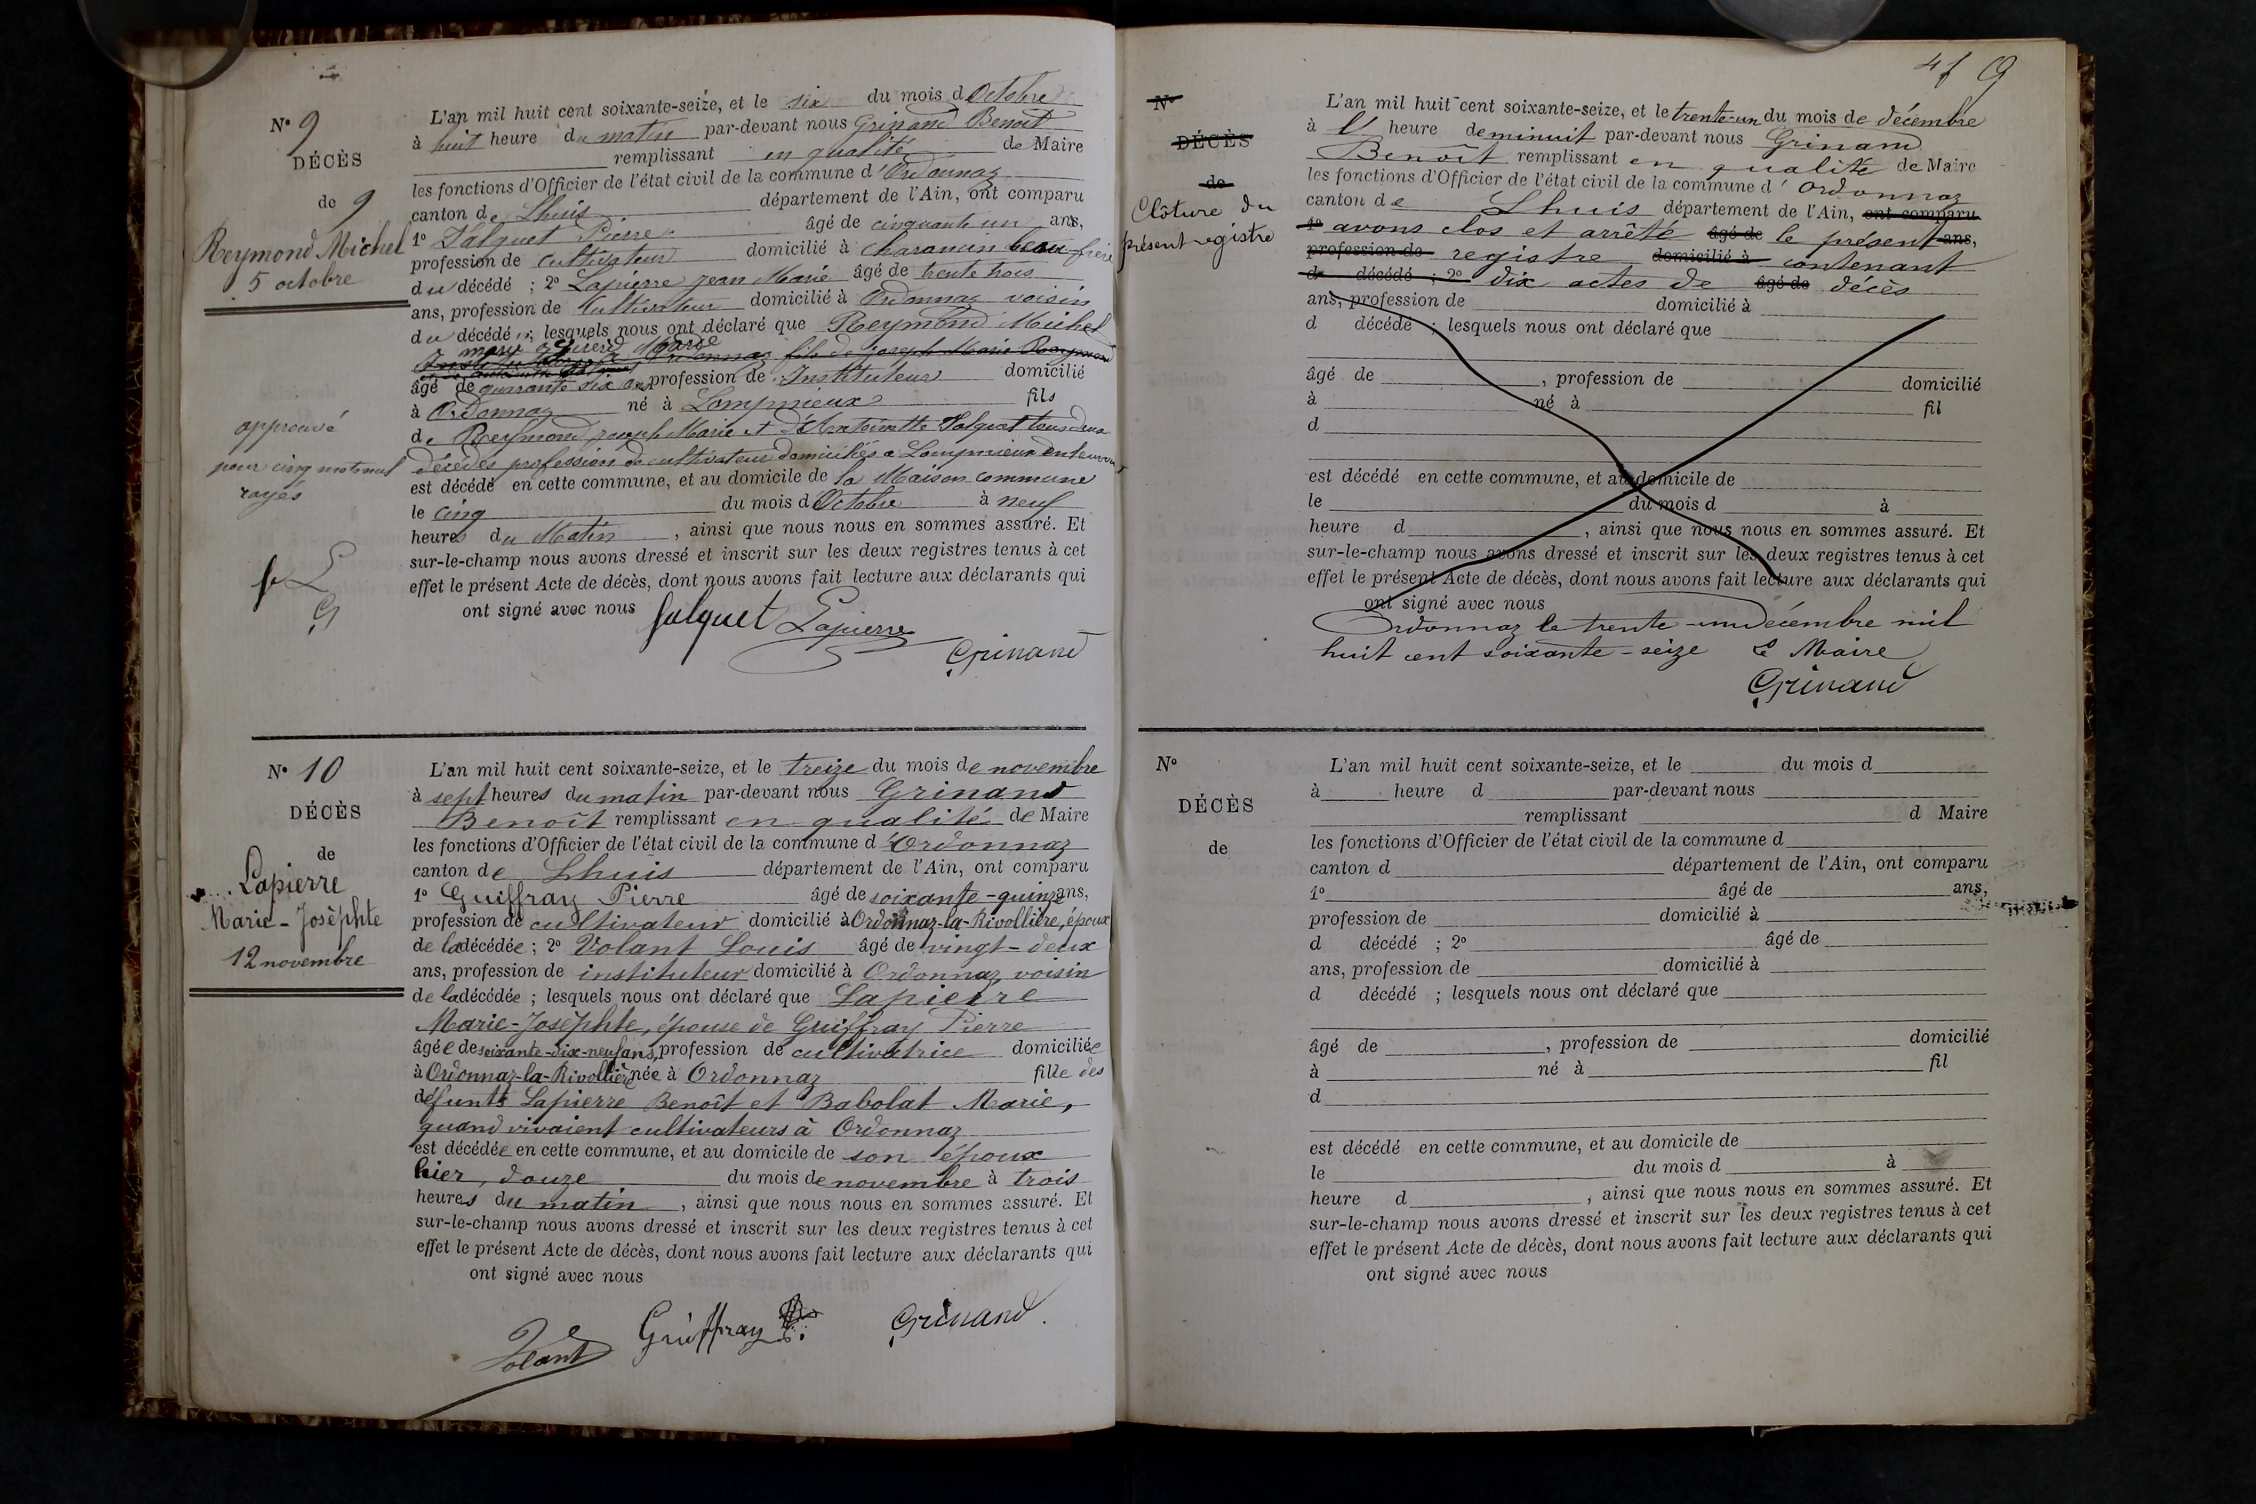 N° 9
DÉCÈS
de 9
Reymond Michel
5 octobre
L'an mil huit cent soixante-seize, et le six du mois d Octobre
à huit heure du matin par-devant nous Grinand Benoît
remplissant en qualité de Maire
les fonctions d'Officier de l'état civil de la commune d'Ordonnaz
canton de Lhuis département de l'Ain, ont comparu
1° Falquet Pierre âgé de cinquante un ans,
profession de cultivateur domicilié à Charancin beau frère
du décédé ; 2° Lapierre jean Marie âgé de trente trois
ans, profession de Cultivateur domicilié à Ordonnaz voisin
du décédé ; lesquels nous ont déclaré que Reymond Michel
Ordonnaz fils de joseph Marie Reymond
âgé de quarante six ans profession de Instituteur domicilié
à Ordonnaz né à Lompnieux fils
de Reymond joseph Marie et d'Antoinette Falquet tous deux
décédés profession de cultivateur domiciliés a Lompnieux
est décédé en cette commune, et au domicile de la Maison commune
le cinq du mois d Octobre à neuf
heures du Matin , ainsi que nous nous en sommes assuré. Et
sur-le-champ nous avons dressé et inscrit sur les deux registres tenus à cet
effet le présent Acte de décès, dont nous avons fait lecture aux déclarants qui
ont signé avec nous
approuvé
pour cinq mots nuls
rayés
f L
G
falquet Lapierre
Grinand
N° 10
DÉCÈS
de
Lapierre
Marie-Josèphte
12 novembre
L'an mil huit cent soixante-seize, et le treize du mois de novembre
à sept heures du matin par-devant nous Grinand
Benoît remplissant en qualité de Maire
les fonctions d'Officier de l'état civil de la commune d'Ordonnaz
canton de Lhuis département de l'Ain, ont comparu
1° Guiffray Pierre âgé de soixante-quinze ans,
profession de cultivateur domicilié à Ordonnaz-la-Rivollière, époux
de la décédée ; 2° Volant Louis âgé de vingt-deux
ans, profession de instituteur domicilié à Ordonnaz, voisin
de la décédée ; lesquels nous ont déclaré que Lapierre
Marie-Josèphte, épouse de Guiffray Pierre
âgée de soixante-dix-neuf ans, profession de cultivatrice domiciliée
à Ordonnaz-la-Rivollière née à Ordonnaz fille des
défunts Lapierre Benoît et Babolat Marie,
quand vivaient cultivateurs à Ordonnaz
est décédée en cette commune, et au domicile de son époux
hier, douze du mois de novembre à trois
heures du matin , ainsi que nous nous en sommes assuré. Et
sur-le-champ nous avons dressé et inscrit sur les deux registres tenus à cet
effet le présent Acte de décès, dont nous avons fait lecture aux déclarants qui
ont signé avec nous
Volant Guiffray P. Grinand
4f G
N°
DÉCÈS
de
Clôture du
présent registre
L'an mil huit cent soixante-seize, et le trente-un du mois de décembre
à l' heure de minuit par-devant nous Grinand
Benoît remplissant en qualité de Maire
les fonctions d'Officier de l'état civil de la commune d'Ordonnaz
canton de Lhuis département de l'Ain, ont comparu
1° avons clos et arrêté âgé de le présent ans,
profession de registre domicilié à contenant
d décédé ; 2° dix actes de âgé de décès
ans, profession de domicilié à
d décédé ; lesquels nous ont déclaré que
âgé de , profession de domicilié
à né à fil
d
est décédé en cette commune, et au domicile de
le du mois d à
heure d , ainsi que nous nous en sommes assuré. Et
sur-le-champ nous avons dressé et inscrit sur les deux registres tenus à cet
effet le présent Acte de décès, dont nous avons fait lecture aux déclarants qui
ont signé avec nous
Ordonnaz le trente-un décembre mil
huit cent soixante-seize Le Maire
Grinand
N°
DÉCÈS
de
L'an mil huit cent soixante-seize, et le du mois d
à heure d par-devant nous
remplissant d Maire
les fonctions d'Officier de l'état civil de la commune d
canton d département de l'Ain, ont comparu
1° âgé de ans,
profession de domicilié à
d décédé ; 2° âgé de
ans, profession de domicilié à
d décédé ; lesquels nous ont déclaré que
âgé de , profession de domicilié
à né à fil
d
est décédé en cette commune, et au domicile de
le du mois d à
heure d , ainsi que nous nous en sommes assuré. Et
sur-le-champ nous avons dressé et inscrit sur les deux registres tenus à cet
effet le présent Acte de décès, dont nous avons fait lecture aux déclarants qui
ont signé avec nous